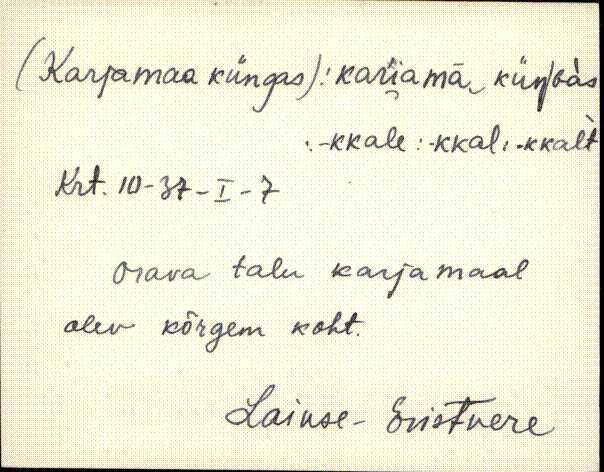 (Karjamaa küngas): kari̯amā küŋ̀G̀às
: -kkale : -kkal : -kkalt
Krt. 10-37-I-7
Orava talu karjamaal
olev kõrgem koht.
Laiuse - Eristvere